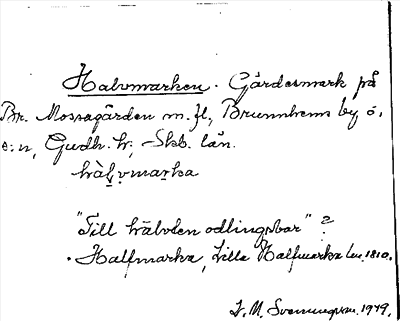 Halvmarken. Gärdesmark på
Br. Mossagården m. fl., Brunnhems by ö.
o: n, Gudh. hr; Skb. län.
hàl̥vmarka
"Till hälvten odlingsbar" ?
• Halfmarka, Lilla Halfmarka Lm. 1810.
1949.